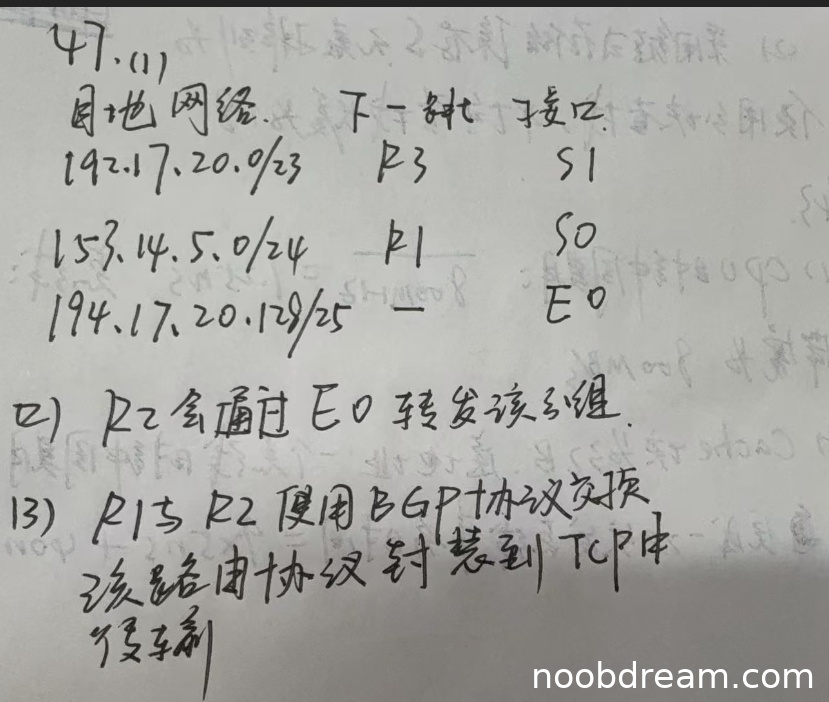 47.(1)
目地网络. 下一跳 接口.
192.17.20.0/23 R3 S1
153.14.5.0/24 R1 S0
194.17.20.128/25 — E0
(2) R2会通过E0转发该分组.
(3) R1与R2使用BGP协议交换
该路由协议封装到TCP中
传输
noobdream.com